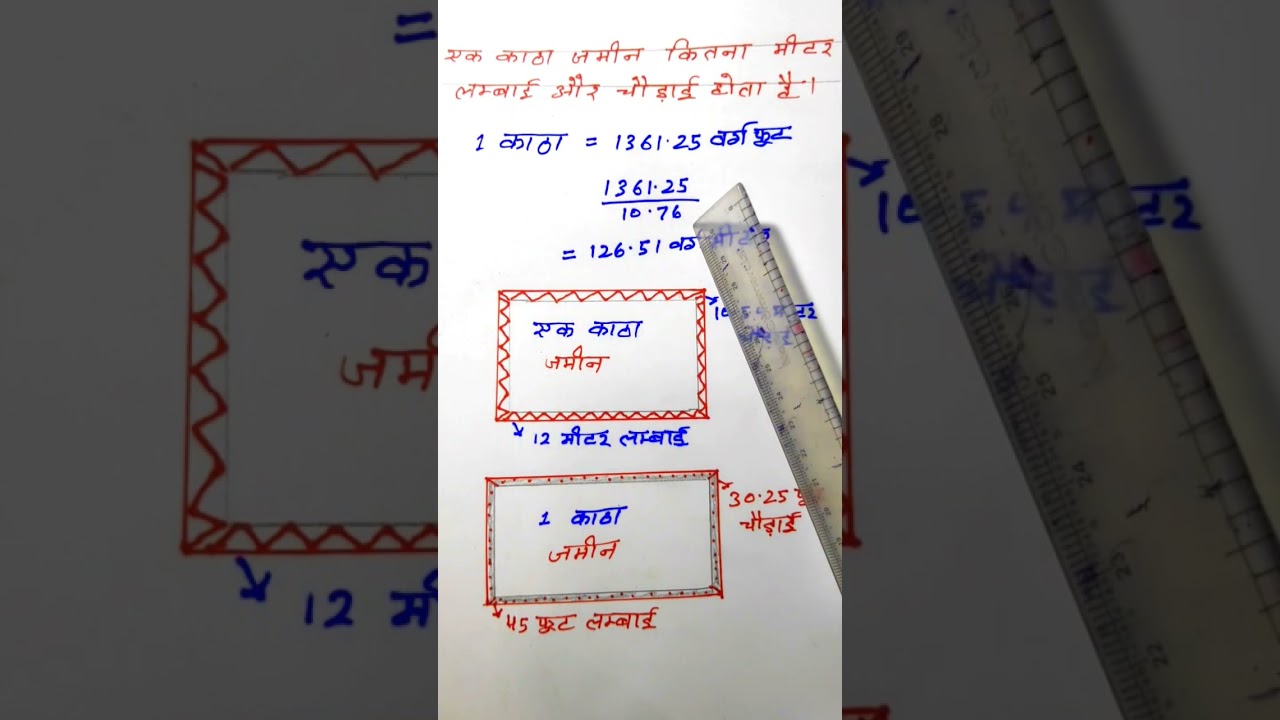 एक काठा जमीन कितना मीटर
लम्बाई और चौड़ाई होता है।
1 काठा = 1361.25 वर्ग फुट
1361.25
10.76
= 126.51 वर्ग
एक काठा
जमीन
12 मीटर लम्बाई
1 काठा
जमीन
30.25
चौड़ाई
45 फुट लम्बाई